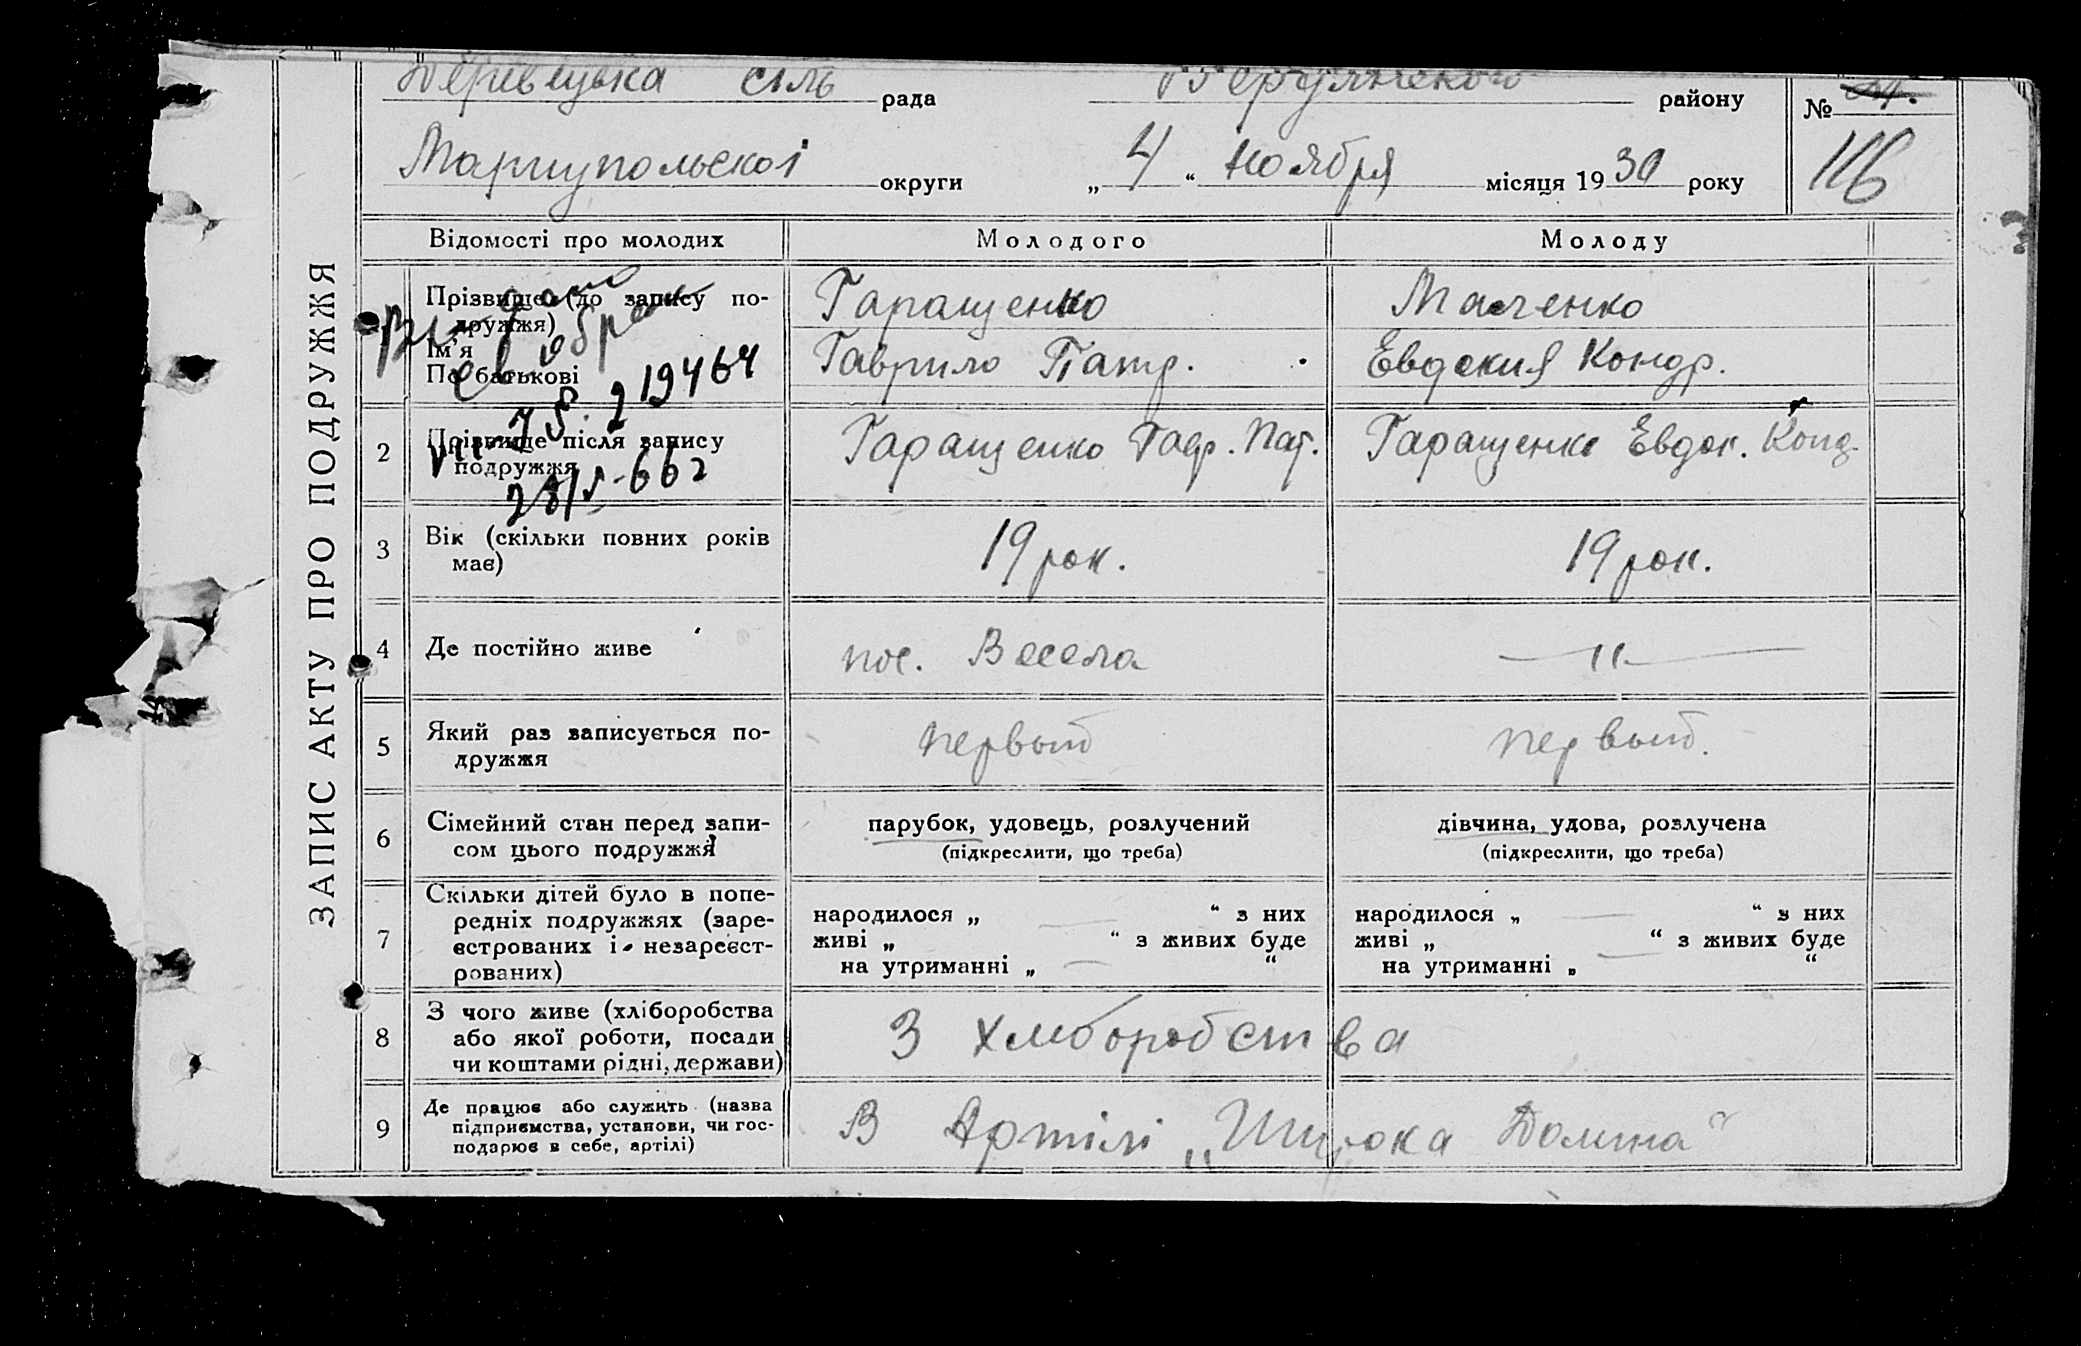 сіль рада Бердянського району №
Мариупольскоі округи „ 4 “ Ноября місяця 1930 року 116
ЗАПИС АКТУ ПРО ПОДРУЖЖЯ
Відомості про молодих Молодого Молоду
Прізвище (до запису по-
дружжя) Гаращенко
Ім'я
По батькові Гаврило Патр. Евдокия Кондр.
219464
2 Прізвище після запису
подружжя Гаращенко Гавр. Пат. Гаращенко Евдок. Конд.
3 Вік (скільки повних років
має) 19 рок. 19 рок.
4 Де постійно живе пос. Весела —〃—
5 Який раз записується по-
дружжя первый первый.
6 Сімейний стан перед запи-
сом цього подружжя
парубок, удовець, розлучений
(підкреслити, що треба)
дівчина, удова, розлучена
(підкреслити, що треба)
7 Скільки дітей було в попе-
редніх подружжях (заре-
єстрованих і незареєст-
рованих)
народилося „ — “ з них
живі „ “ з живих буде
на утриманні „ — “
народилося „ — “ з них
живі „ “ з живих буде
на утриманні „ — “
8 З чого живе (хліборобства
або якої роботи, посади
чи коштами рідні, держави) З хліборобства
9 Де працює або служить (назва
підприємства, установи, чи гос-
подарює в себе, артілі) В Артілі „Широка Долина“